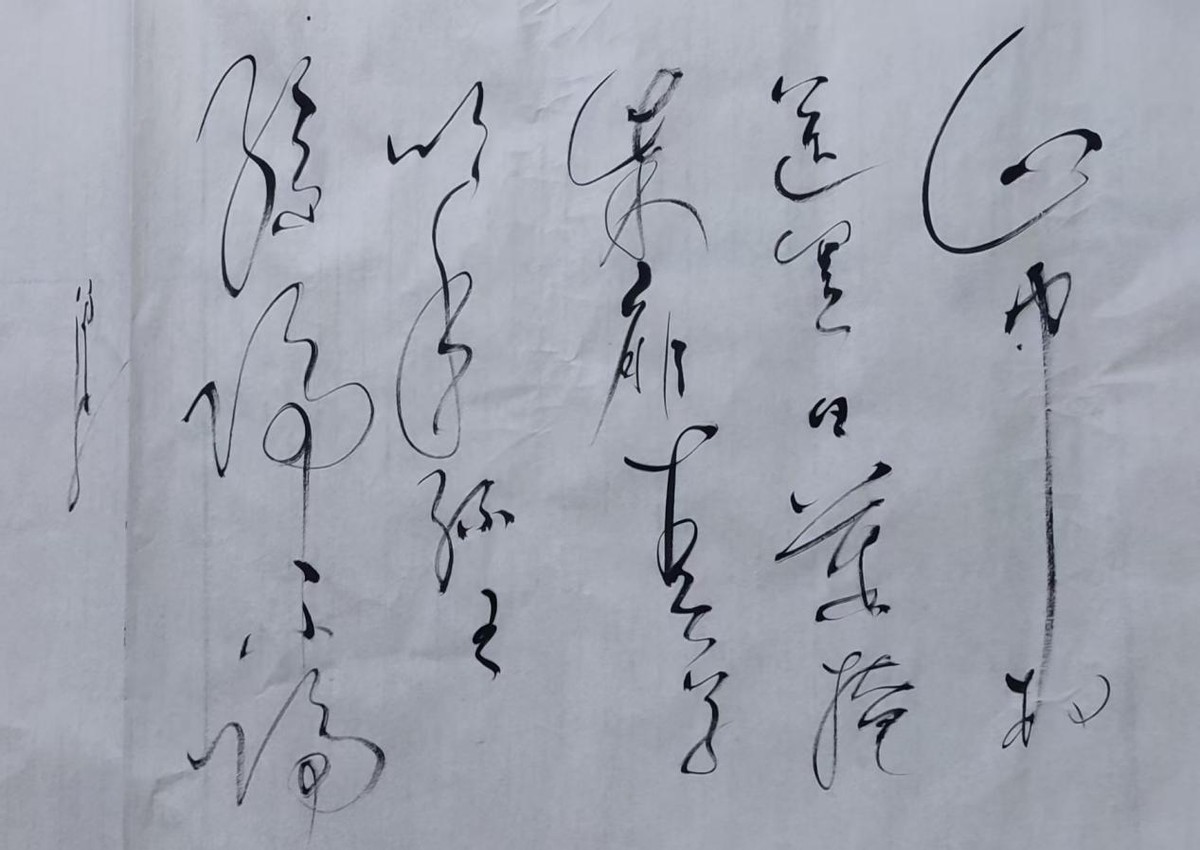 山中相
送罢日暮掩
柴扉春草
明年绿王
孙归不归